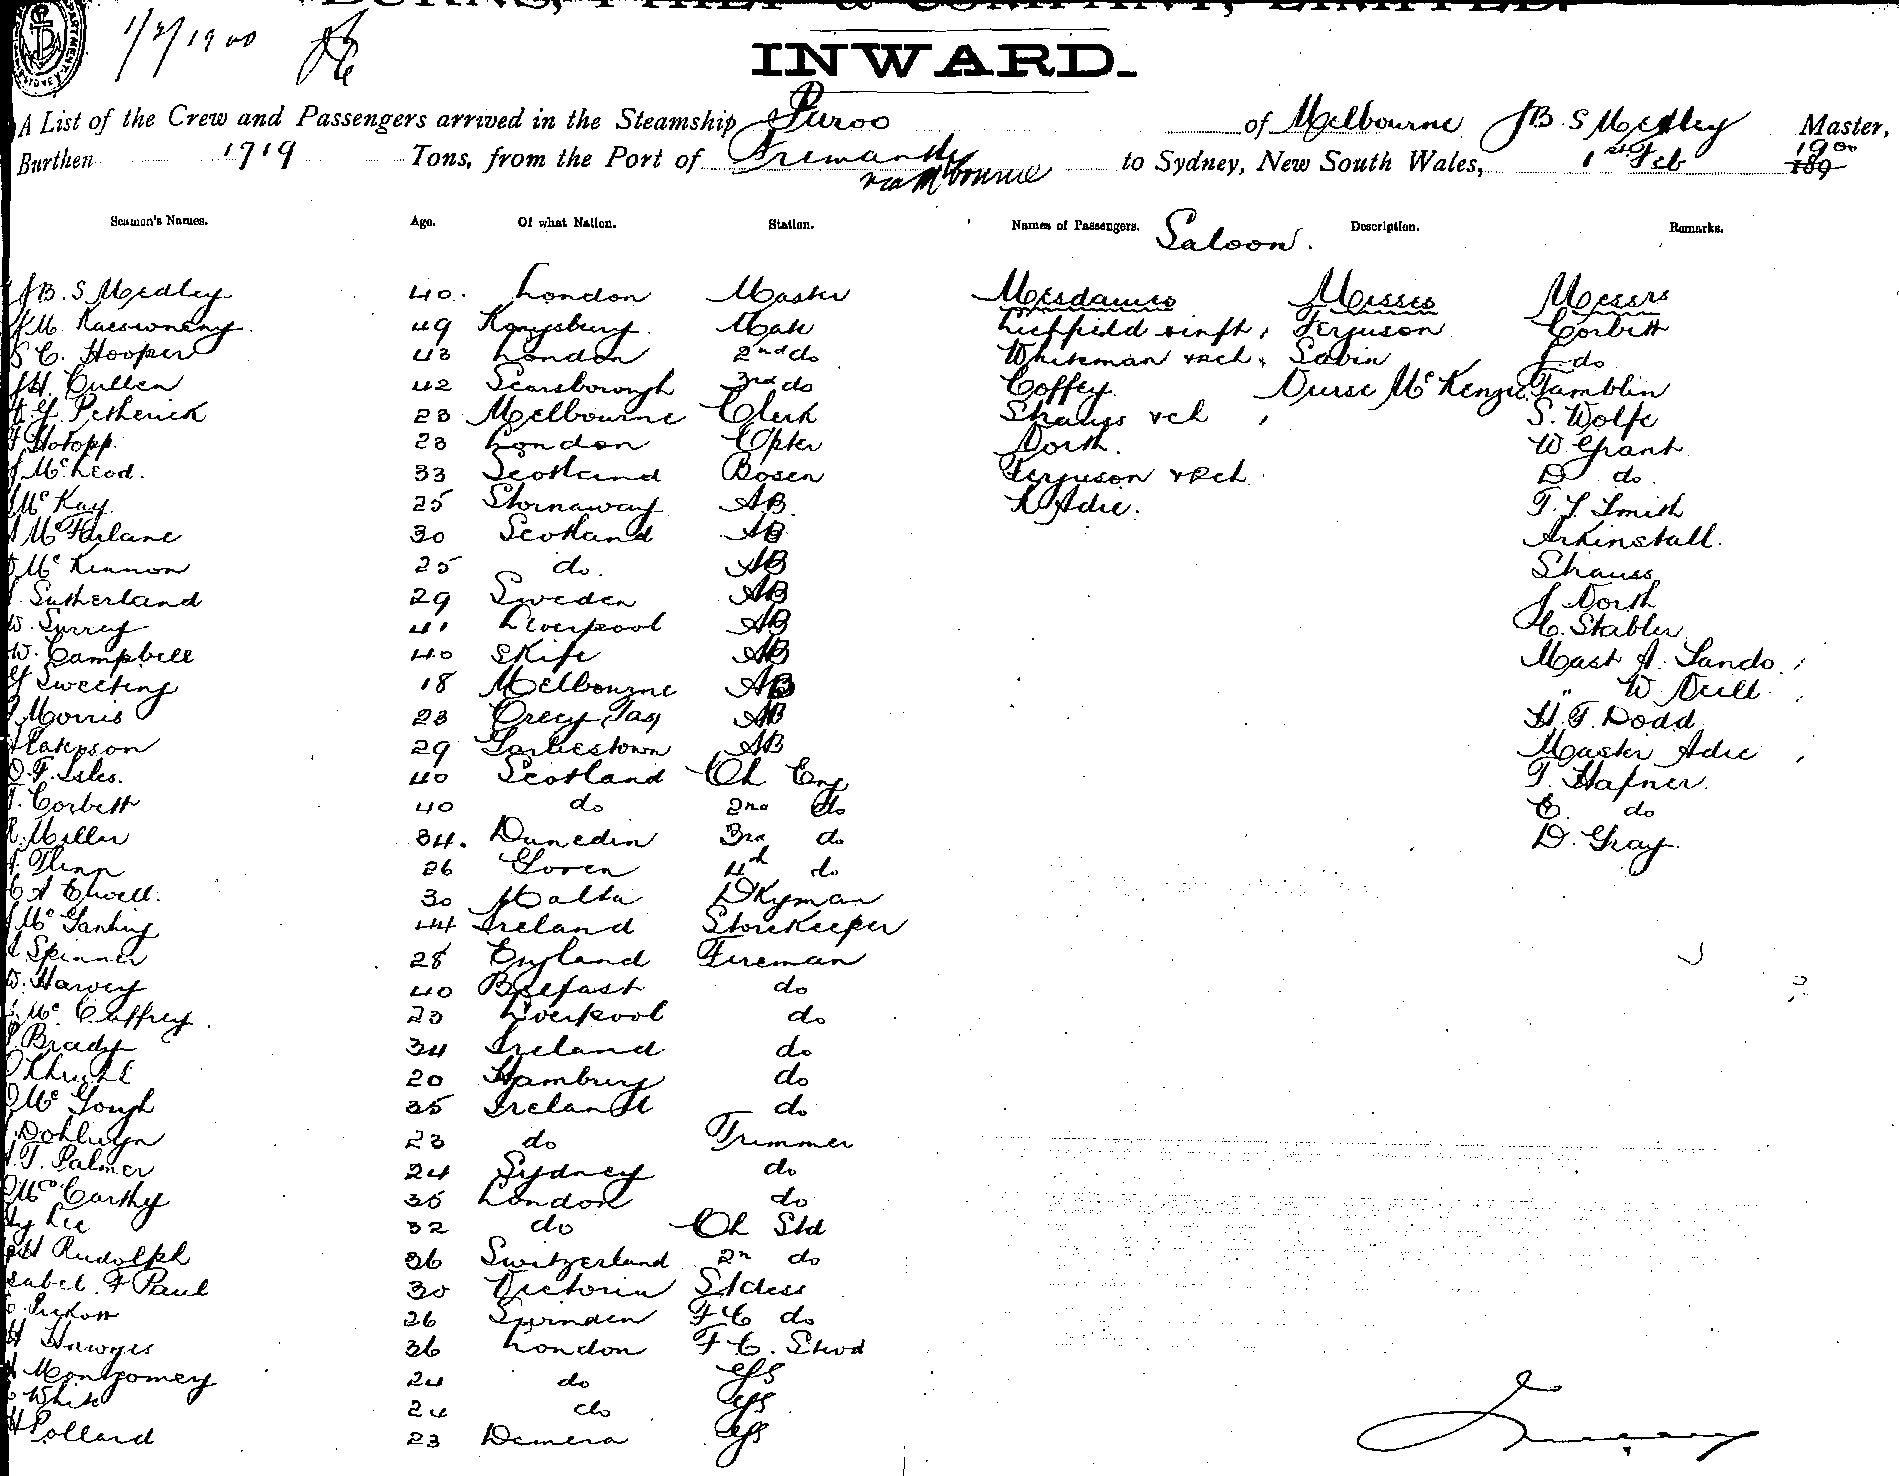 BURNS, PHILP & COMPANY, LIMITED.
1/2/1900
INWARD.
A List of the Crew and Passengers arrived in the Steamship Buroo of Melbourne J B. S Medley Master,
Burthen 1719 Tons, from the Port of Fremantle via Mbourne to Sydney, New South Wales, 1st Feb 1900 189
Seamen's Names. Age. Of what Nation. Station. Names of Passengers. Saloon. Description. Remarks.
J B. S Medley 40. London Master Mesdames Misses Messrs
49 Konysburg Mate Lichfield & inft, Ferguson Corbett
S C. Hooper 43 London 2nd do Whiteman & ch, Sabin J do
J H. Cullen 42 Scarsborough 3rd do Coffey Nurse McKenzie Tamblin
H G Petherick 23 Melbourne Clerk Shauss & ch, S. Wolfe
F Hotopp. 23 London Cpter North. W Grant
J McLeod. 33 Scotland Bosen Ferguson & 2ch D do
McKay 25 Stornaway AB K Adie. T. J Smith
McFarlane 30 Scotland AB Arkinstall.
McKinnon 25 do. AB Shauss
Sutherland 29 Sweden AB J North
W. Surrey 41 Liverpool AB C. Stabler
W. Campbell 40 Skife AB Mast A. Sando,
G Sweeting 18 Melbourne AB " W Neill
Morris 23 AB H. T. Dodd
29 AB Master Adie,
D. F. Isles. 40 Scotland Ch Eng T. Hafner.
T. Corbett 40 do 2nd do C. do
R. Miller 34. Dunedin 3rd do D. Gray.
Flinn 26 4th do
C A Elwell. 30 Malta DKyman
44 Ireland StoreKeeper
Spinner 28 England Fireman
D. Harvey 40 Belfast do
McCaffrey 23 Liverpool do
Brady 34 Ireland do
20 Hamburg do
McGough 35 Ireland do
23 do Trimmer
T. Palmer 24 Sydney do
McCarthy 35 London do
Lee 32 do Ch Std
H Rudolph 36 Switzerland 2n do
Isabel F Paul 30 Victoria Stdess
26 F C do
H 36 London F C. Stwd
Montgomey 24 do
White 24 do
H Pollard 23 Demera